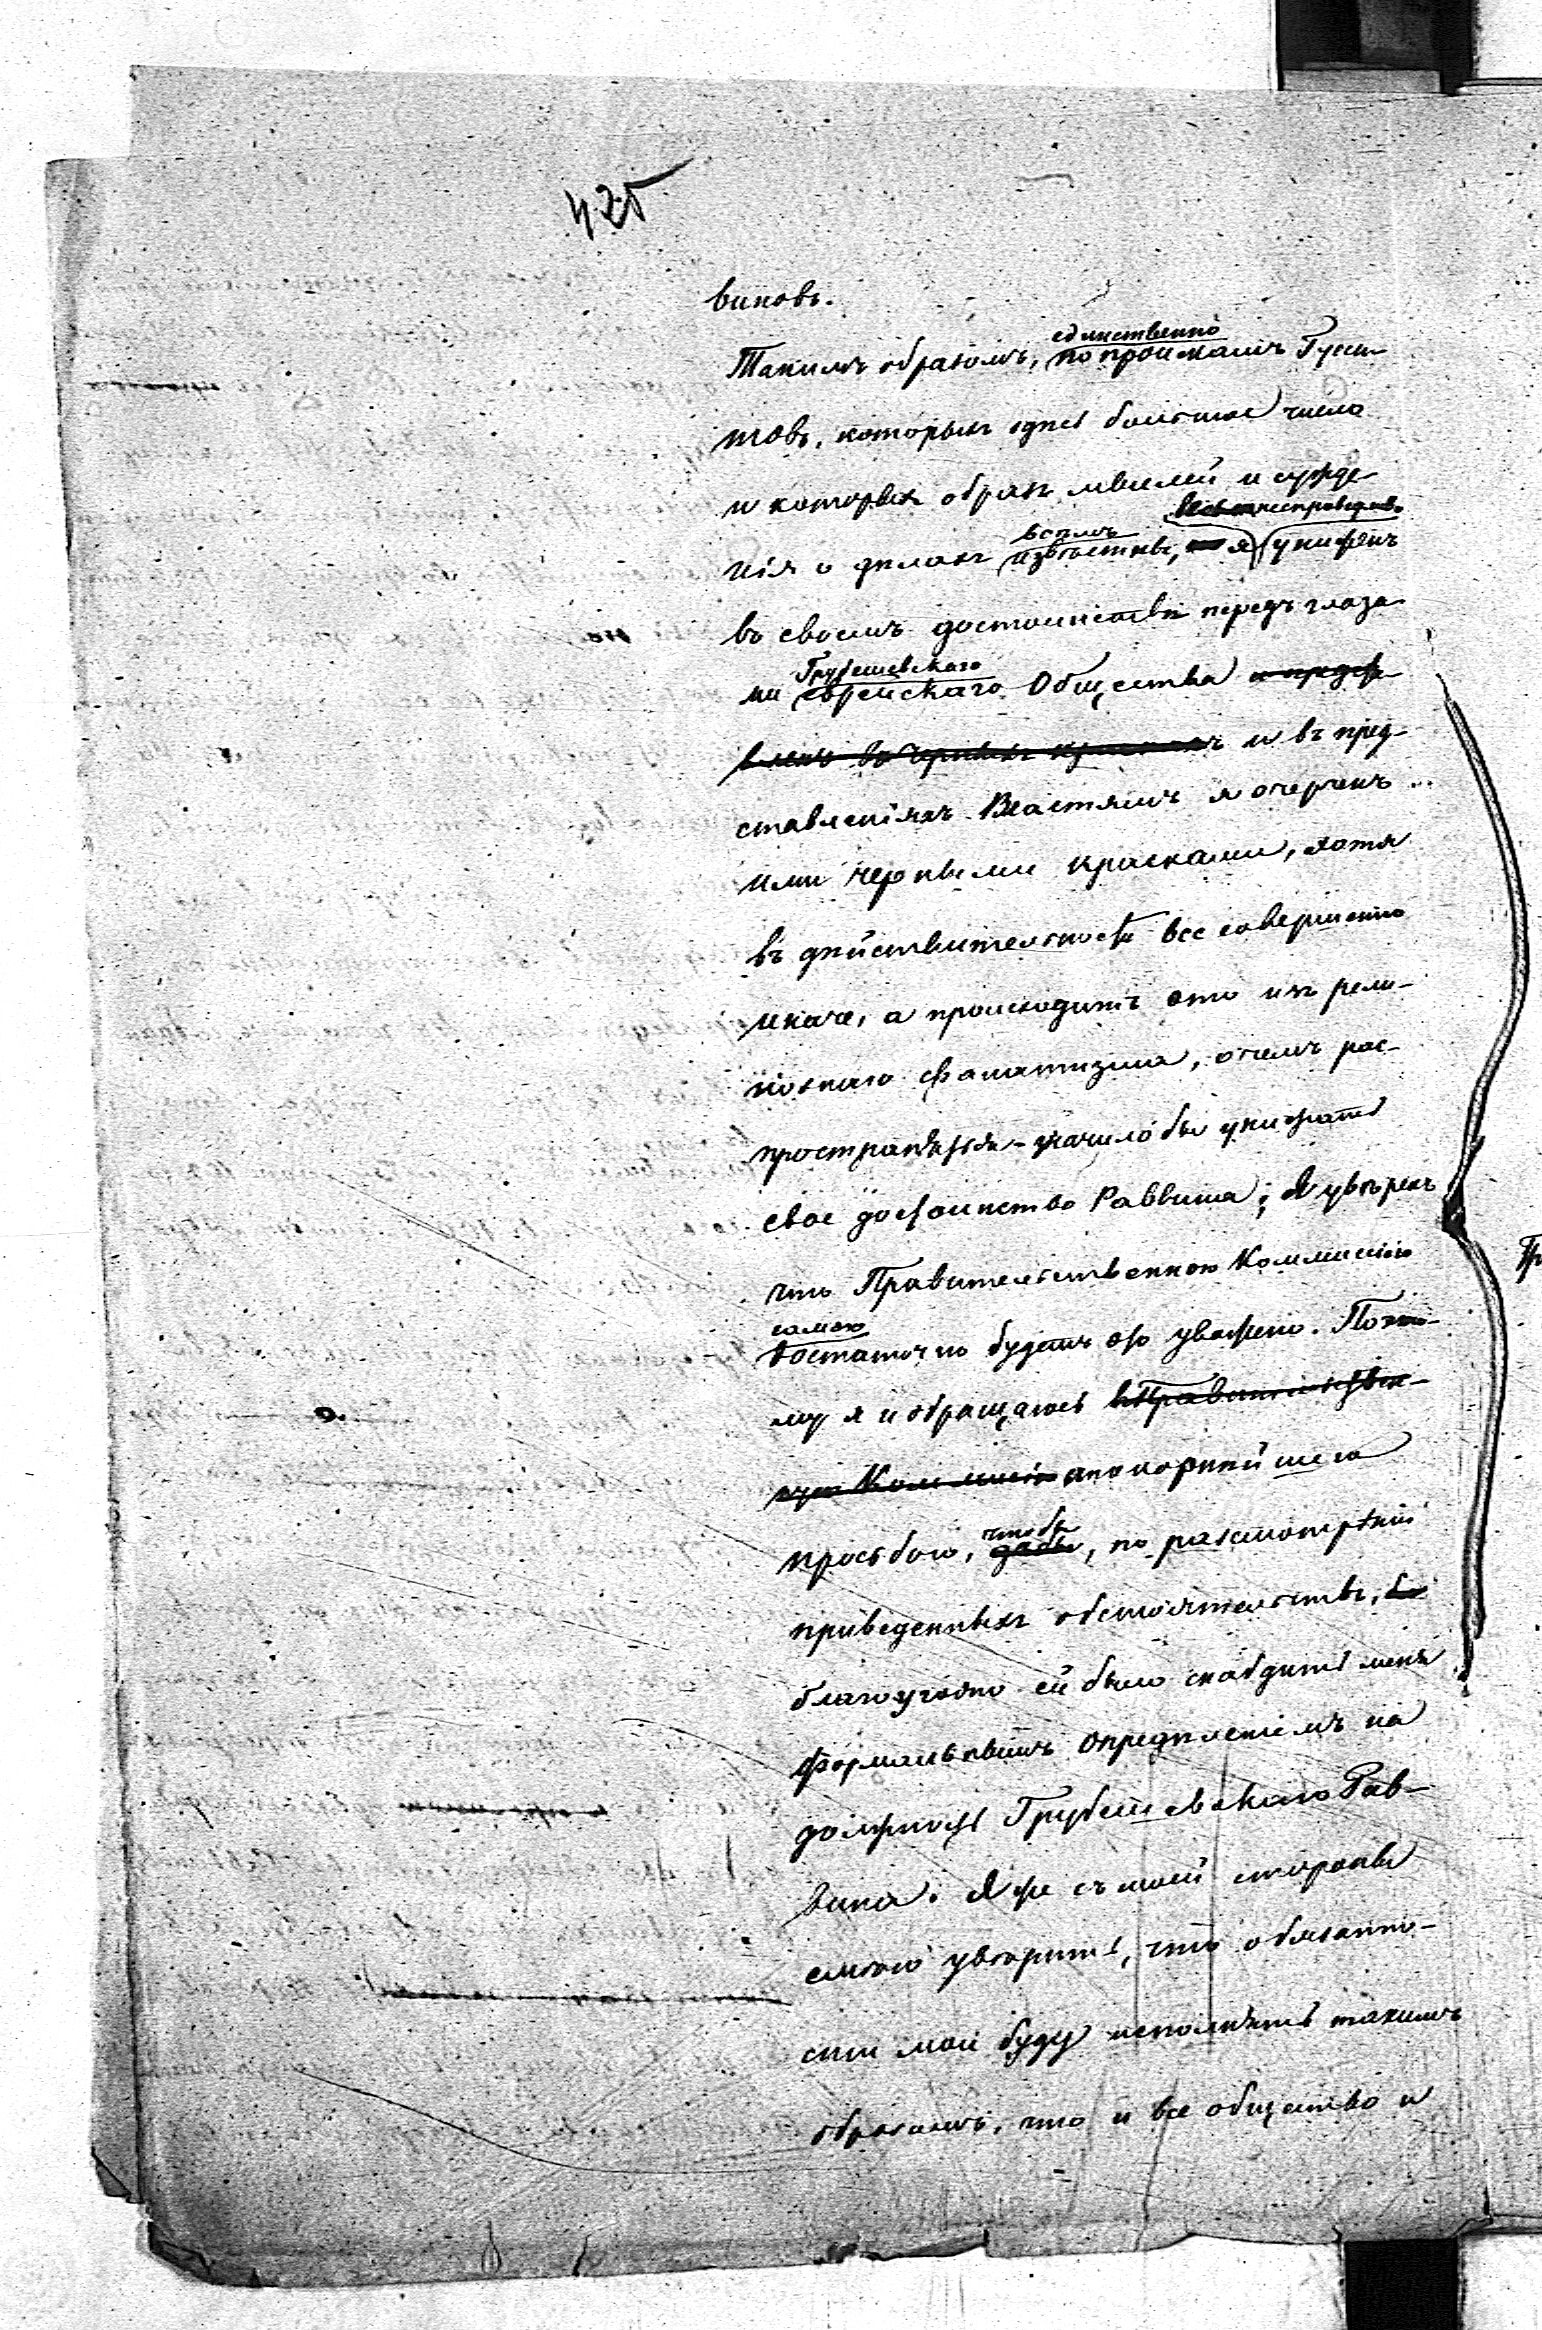 425
виновъ.
единственно
Такимъ образомъ, по проискамъ Гуси-
товъ, которыхъ здѣсь большое число
и которыхъ образъ мыслей и сужде-
всѣмъ несправедливо
нія о дѣлахъ извѣстны, я униженъ
въ своемъ достоинствѣ передъ глаза-
Грубешевскаго
ми еврейскаго Общества и представ-
вленъ въ черныхъ краскахъ и въ пред-
ставленіяхъ Властямъ я очерченъ
ими черными красками, хотя
въ дѣйствительности все совершенно
иначе, а происходитъ это изъ рели-
гіознаго фанатизма, о чемъ рас-
пространяться - значило бы унижать
свое достоинство Раввина; Я увѣренъ
что Правительственною Коммисіею
самою
достаточно будетъ это уважено. Поэто-
му я и обращаюсь къ Правительствен-
ную Коммисію покорнѣйшею
чтобы
просьбою, дабы, по разсмотрѣніи
приведенныхъ обстоятельствъ,
благоугодно ей было снабдить меня
формальнымъ опредѣленіемъ на
должность Грубешевскаго Рав-
вина. Я же съ моей стороны
смѣю увѣрить, что обязанно-
сти мои буду исполнять такимъ
образомъ, что и все общество и